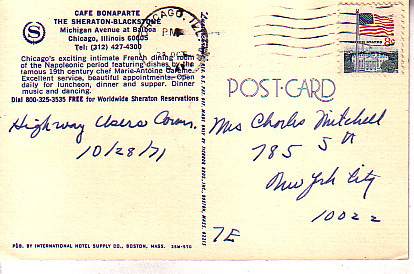 CAFE BONAPARTE
THE SHERATON-BLACKSTONE
Michigan Avenue at Balboa
Chicago, Illinois 60605
Tel: (312) 427-4300
Chicago's exciting intimate French dining room
of the Napoleonic period featuring dishes by the
famous 19th century chef Marie-Antoine Careme.
Excellent service, beautiful appointments. Open
daily for luncheon, dinner and supper. Dinner
music and dancing.
Dial 800-325-3535 FREE for Worldwide Sheraton Reservations
S
CHICAGO, ILL
PM
OCT
8c
POST-CARD
Highway Users Conv.
10/28/71
Mrs Charles Mitchell
785 5th
New York City
10022
7E
PUB. BY INTERNATIONAL HOTEL SUPPLY CO., BOSTON, MASS.